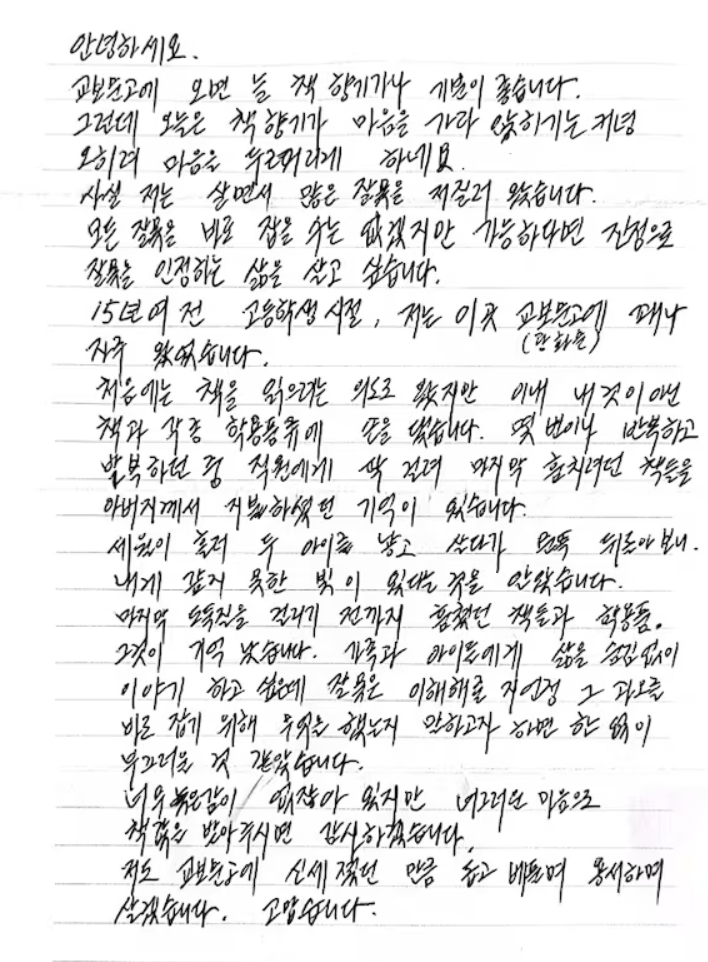 안녕하세요.
교보문고에 오면 늘 책 향기가나 기분이 좋습니다.
그런데 오늘은 책 향기가 마음을 가라 앉히기는 커녕
오히려 마음을 두려머리게 하네요.
사실 저는 살면서 많은 잘못을 저질러 왔습니다.
모든 잘못을 바로 잡을 수는 없겠지만 가능하다면 진정으로
잘못을 인정하는 삶을 살고 싶습니다.
15년 여 전 고등학생 시절, 저는 이곳 교보문고에 꽤나
(광화문)
자주 왔었습니다.
처음에는 책을 읽으려는 의도로 왔지만 이내 내 것이 아닌
책과 각종 학용품류에 손을 댔습니다. 몇 번이나 반복하고
반복하던 중 직원에게 딱 걸려 마지막 훔치려던 책들을
아버지께서 지불하셨던 기억이 있습니다.
세월이 흘러 두 아이를 낳고 살다가 문득 뒤돌아 보니.
내게 갚지 못한 빚이 있다는 것을 알았습니다.
마지막 도둑질을 걸리기 전까지 훔쳤던 책들과 학용품.
그것이 기억 났습니다. 가족과 아이들에게 삶을 숨김 없이
이야기 하고 싶은데 잘못은 이해해줄 지언정 그 과오를
바로 잡기 위해 무엇을 했는지 말하고자 하면 한 없이
부끄러울 것 같았습니다.
너무 늦은감이 없잖아 있지만 너그러운 마음으로
책값을 받아주시면 감사하겠습니다.
저도 교보문고에 신세 졌던 만큼 돕고 베풀며 용서하며
살겠습니다. 고맙습니다.